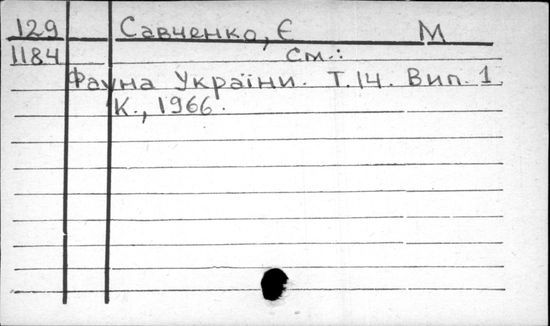 129 Савченко, Є М
1184 см.:
Фауна України. Т. 14. Вип. 1
К., 1966.